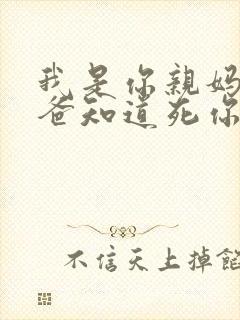 我是你親妈
爸知道死你
不信天上掉餡